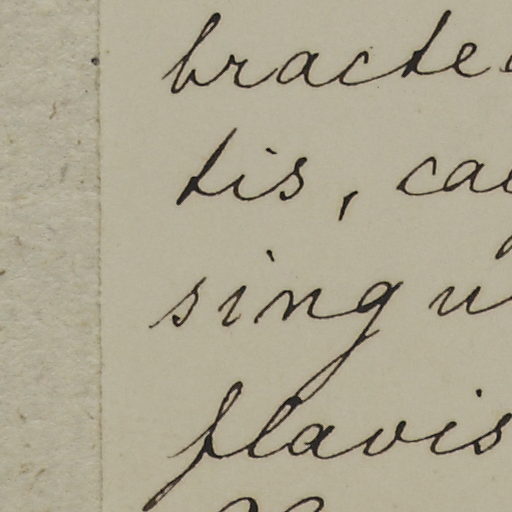 bracte
tis, ca
singu
flavis